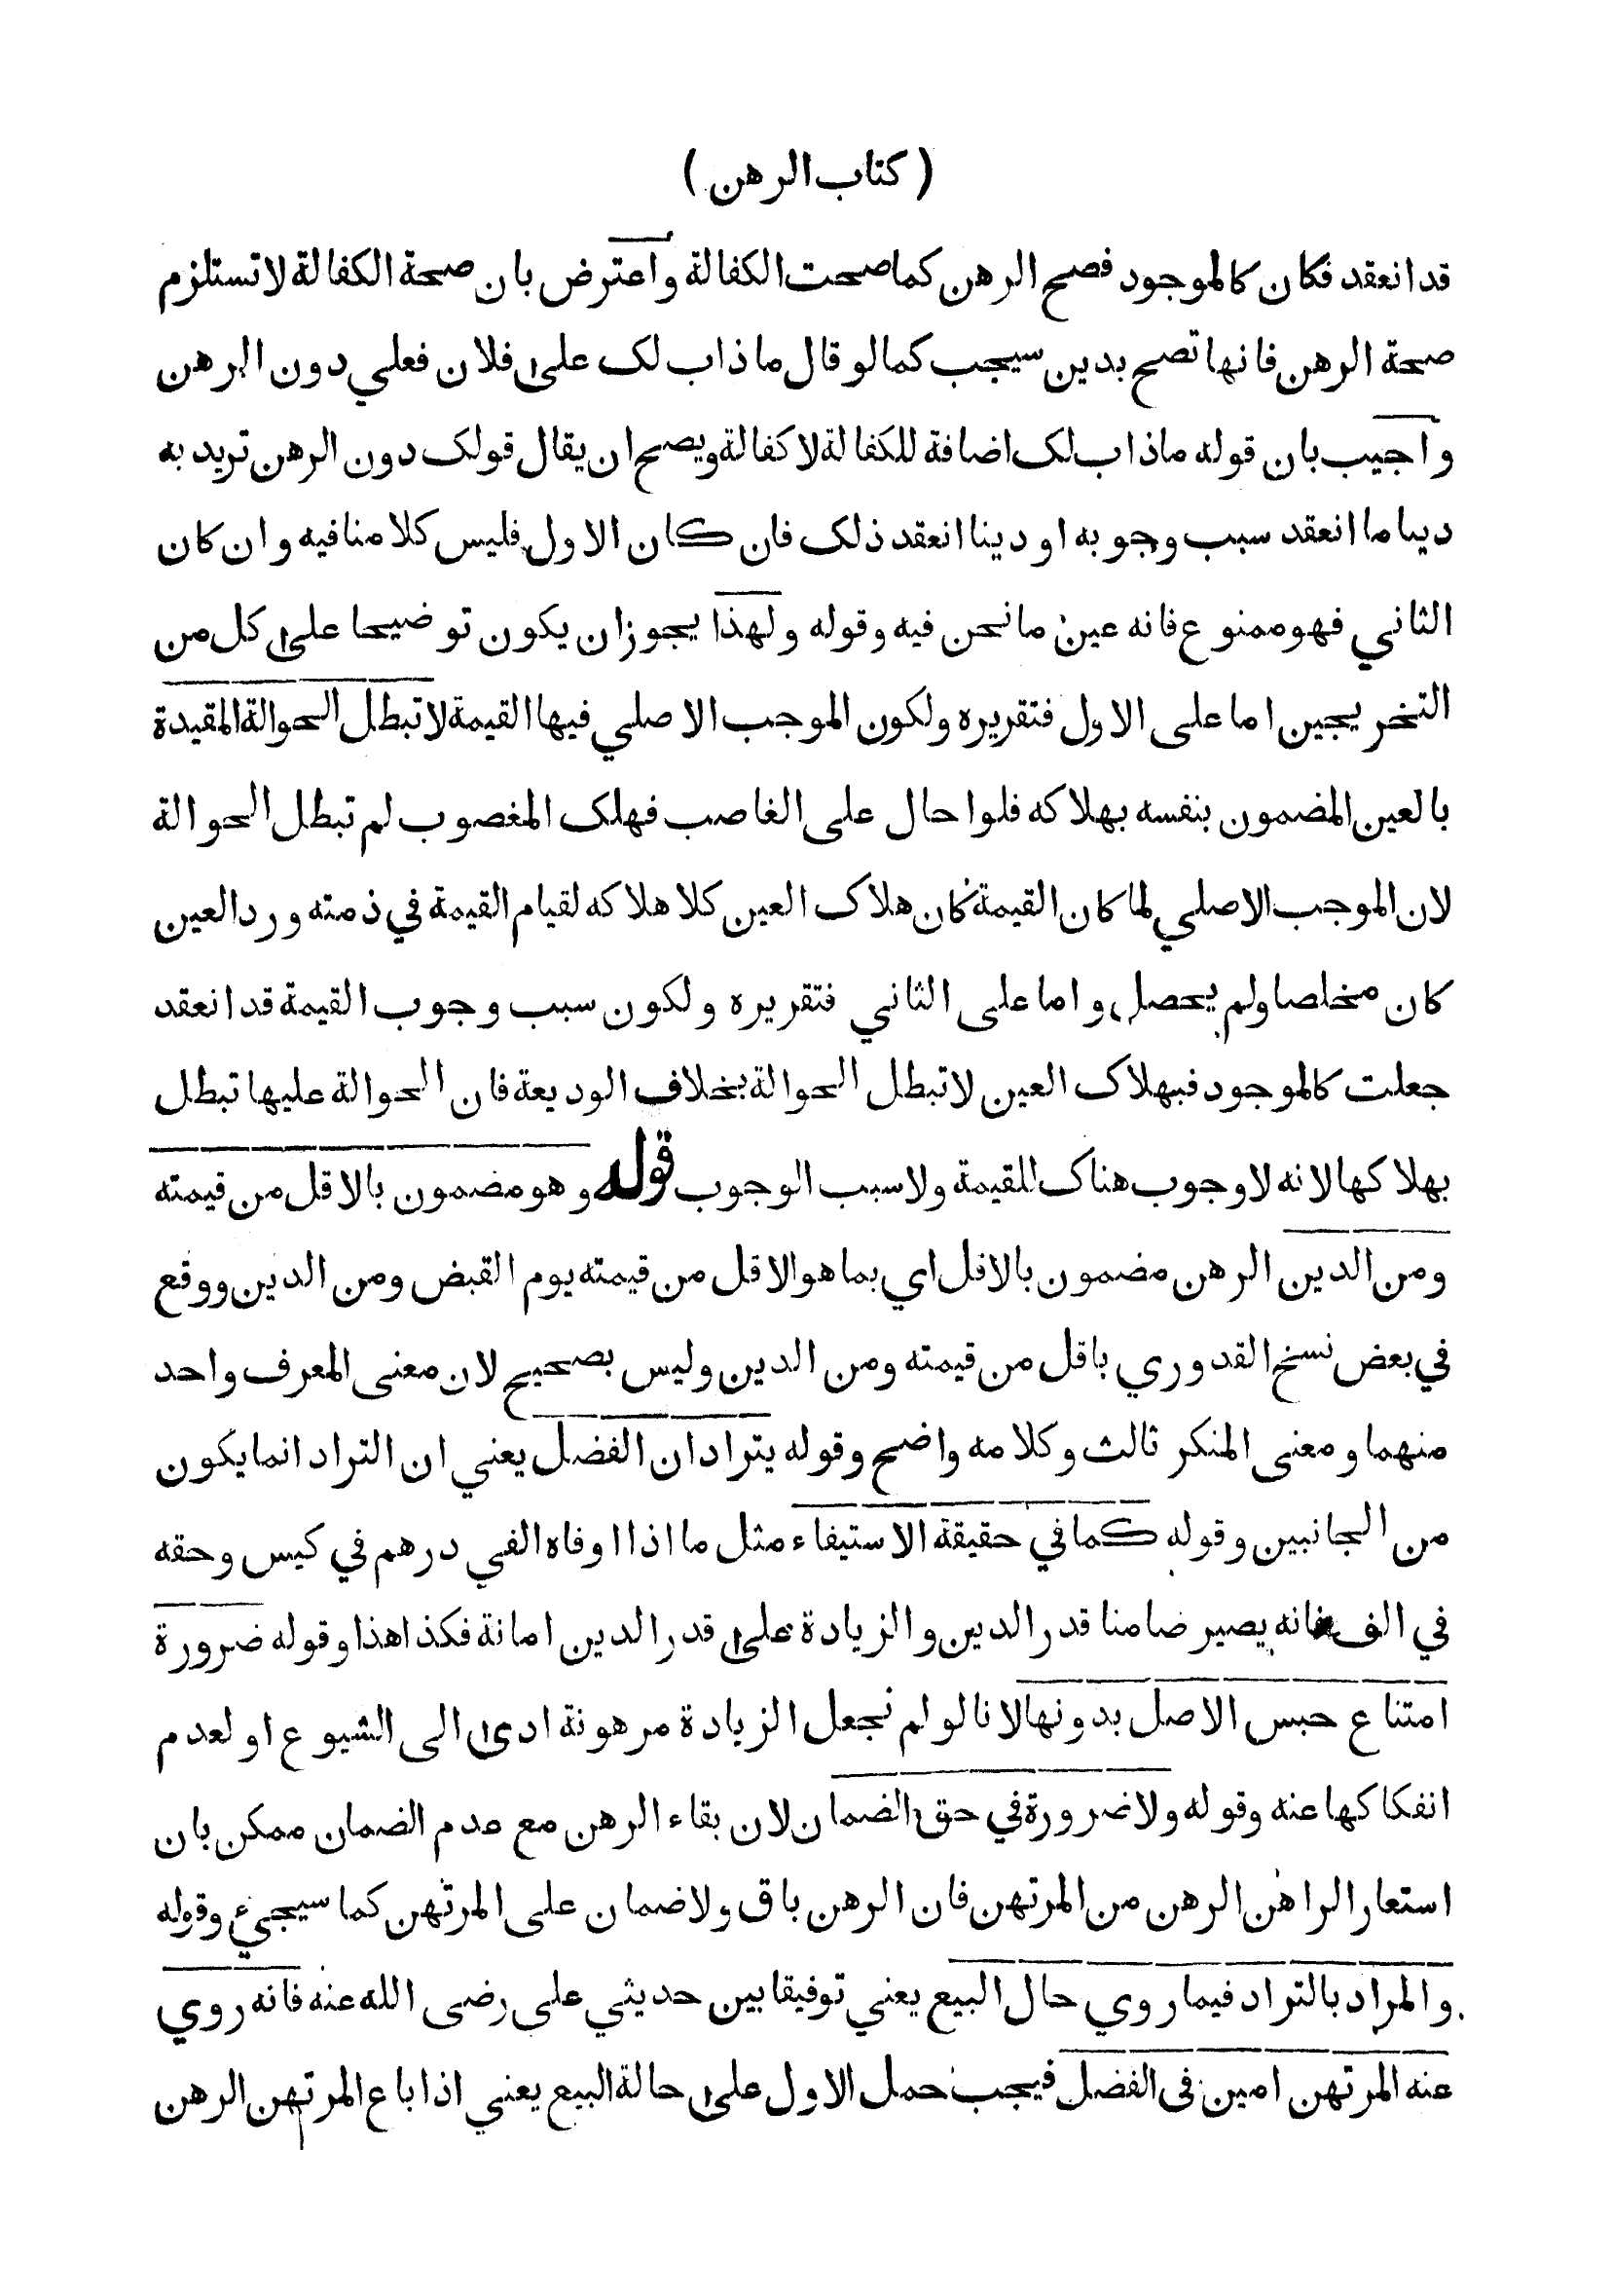 ( كتاب الرهن )
قد انعقد فكان كالموجود فصح الرهن كما صحت الكفالة واعترض بان صحة الكفالة لا تستلزم
صحة الرهن فانها تصح بدين سيجب كما لو قال ما ذاب لك على فلان فعلي دون الرهن
واجيب بان قوله ما ذاب لك اضافة للكفالة لا كفالة ويصح ان يقال قولك دون الرهن تريد به
دينا ما انعقد سبب وجوبه او دينا انعقد ذلك فان كان الاول فليس كلامنا فيه وان كان
الثاني فهو ممنوع فانه عين ما نحن فيه وقوله ولهذا يجوز ان يكون توضيحا على كل من
التخريجين اما على الاول فتقريره ولكون الموجب الاصلي فيها القيمة لا تبطل الحوالة المقيدة
بالعين المضمون بنفسه بهلاكه فلو احال على الغاصب فهلك المغصوب لم تبطل الحوالة
لان الموجب الاصلي لما كان القيمة كان هلاك العين كلا هلاكه لقيام القيمة في ذمته ورد العين
كان مخلصا ولم يحصل واما على الثاني فتقريره ولكون سبب وجوب القيمة قد انعقد
جعلت كالموجود فبهلاك العين لا تبطل الحوالة بخلاف الوديعة فان الحوالة عليها تبطل
بهلاكها لانه لا وجوب هناك للقيمة ولا سبب الوجوب قوله وهو مضمون بالاقل من قيمته
ومن الدين الرهن مضمون بالاقل اي بما هو الاقل من قيمته يوم القبض ومن الدين ووقع
في بعض نسخ القدوري باقل من قيمته ومن الدين وليس بصحيح لان معنى المعرف واحد
منهما ومعنى المنكر ثالث وكلامه واضح وقوله يترادان الفضل يعني ان التراد انما يكون
من الجانبين وقوله كما في حقيقة الاستيفاء مثل ما اذا اوفاه الفي درهم في كيس وحقه
في الف فانه يصير ضامنا قدر الدين والزيادة على قدر الدين امانة فكذا هذا وقوله ضرورة
امتناع حبس الاصل بدونها لانا لو لم نجعل الزيادة مرهونة ادى الى الشيوع او لعدم
انفكاكها عنه وقوله ولا ضرورة في حق الضمان لان بقاء الرهن مع عدم الضمان ممكن بان
استعار الراهن الرهن من المرتهن فان الرهن باق ولا ضمان على المرتهن كما سيجيء وقوله
والمراد بالتراد فيما روي حال البيع يعني توفيقا بين حديثي على رضى الله عنه فانه روي
عنه المرتهن امين في الفضل فيجب حمل الاول على حالة البيع يعني اذا باع المرتهن الرهن